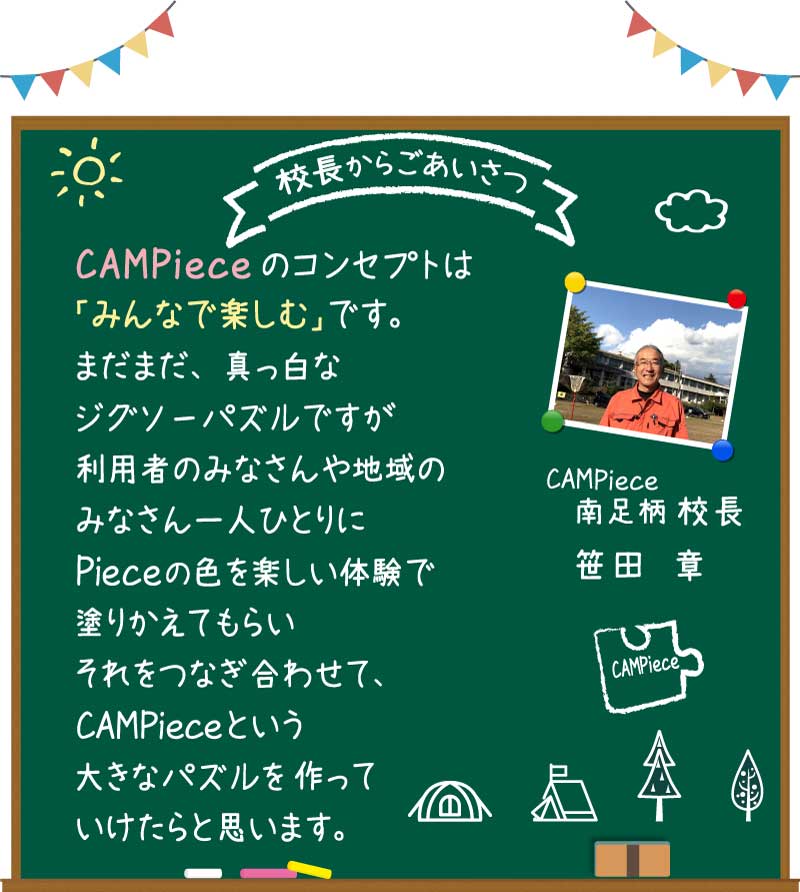 校長からごあいさつ
CAMPiece のコンセプトは
「みんなで楽しむ」です。
まだまだ、真っ白な
ジグソーパズルですが
利用者のみなさんや地域の
みなさん一人ひとりに
Pieceの色を楽しい体験で
塗りかえてもらい
それをつなぎ合わせて、
CAMPieceという
大きなパズルを作って
いけたらと思います。
CAMPiece
南足柄 校長
笹田 章
CAMPiece